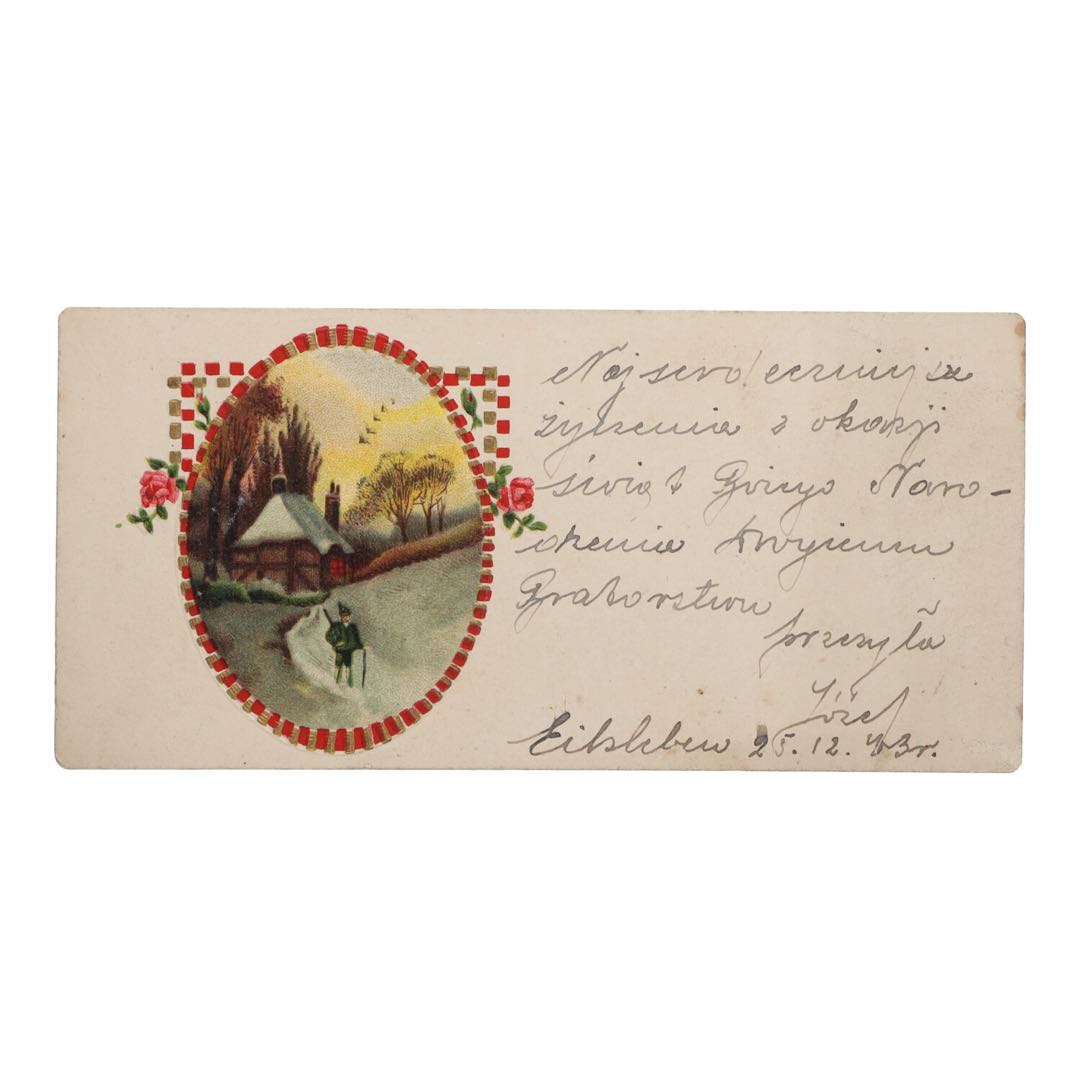 Najserdeczniejsze
życzenia z okazji
świąt Bożego Naro-
dzenia swojemu
Bratostwu
przesyła
Józef
Eiksleben 25.12.43r.